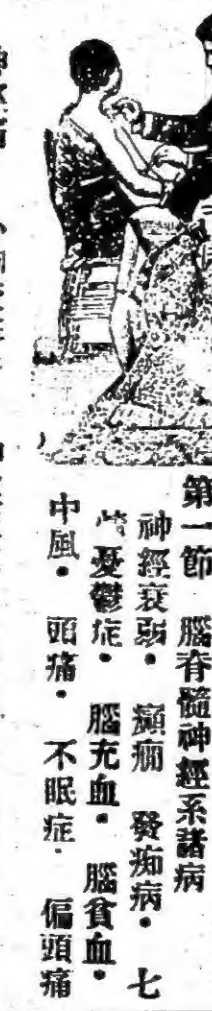 第一節　腦脊髓神經系諸病
神經衰弱・　癲癇　發痴病・　七
憂鬱症・　腦充血・　腦貧血・
中風・　頭痛・　不眠症・　偏頭痛